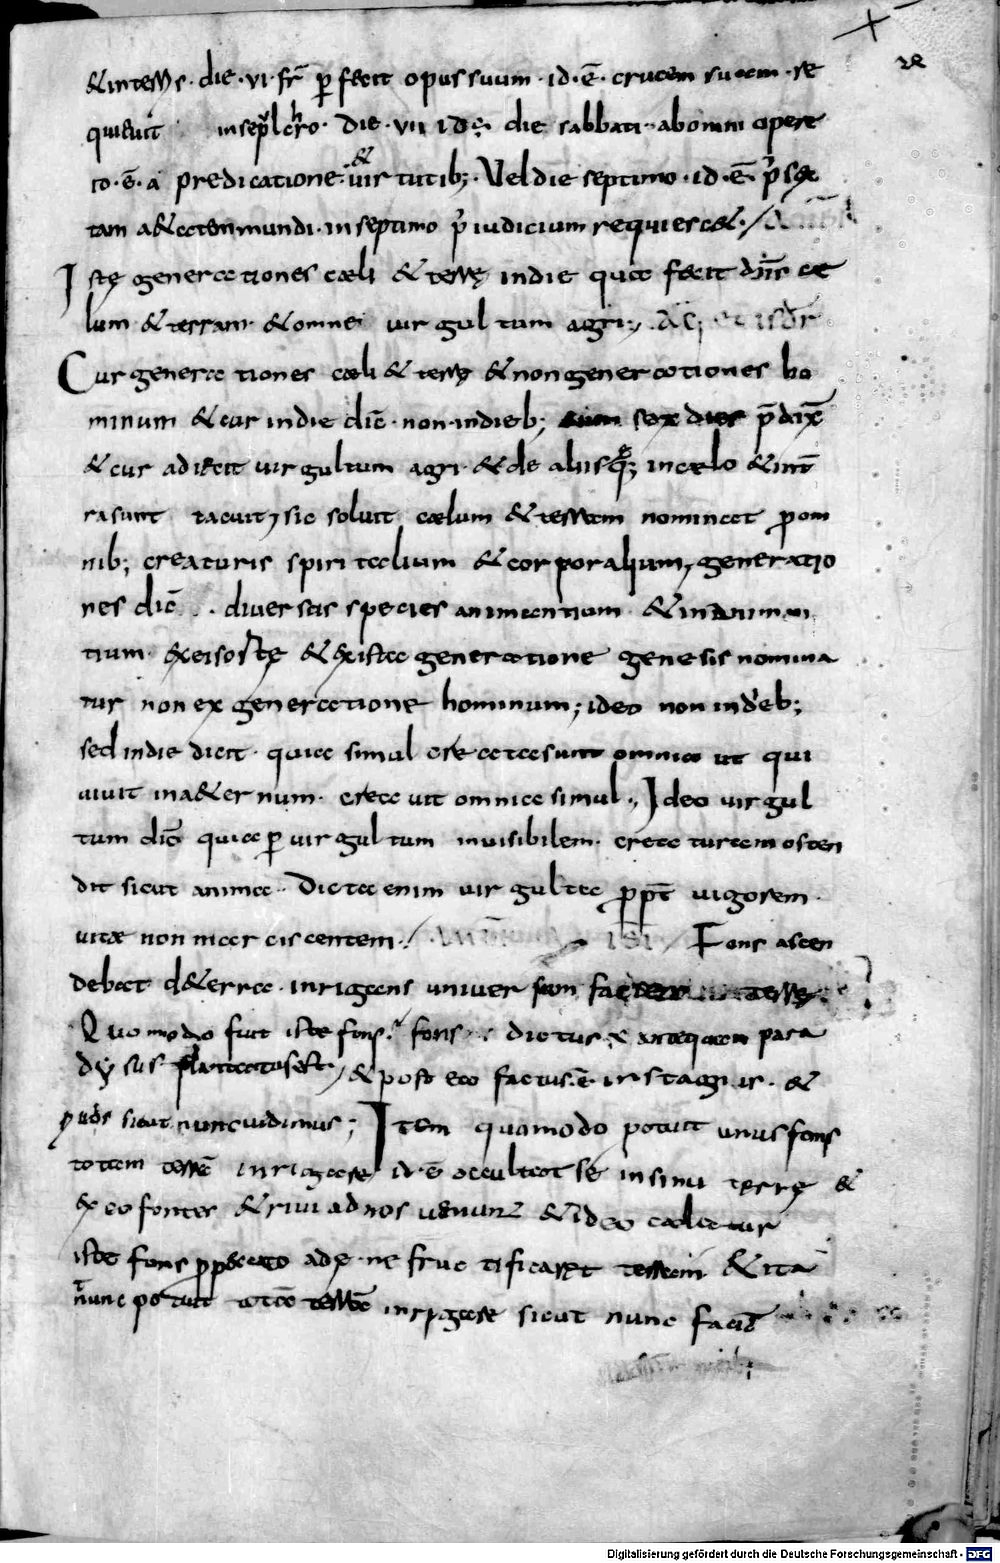 & in terris · die · vi · fr̄ p̲fecit opus suum · id · ē · crucem suam · re
quieuit in sepulchro · Die · vii id ÷ die sabbati · ab omni opere
to · ē · a predicatione · & uirtutib; · Vel die septimo · id · ē ·
tam a&atem mundi · in septimo p̄ iudicium requiesc& ·
Istę generationes cæli & terrę in die qua fecit dn̄s cæ
lum & terram & omne uirgultum agri ;
Cur generationes cæli & terrę & non generationes ho
minum & cur in die dic̄ · non in dieb; sex dies p̄dix̄
& cur adiecit uirgultum agri · & de aliis quę in cælo & in t̄
ra sunt tacuit ; sic soluit cælum & terram nominat p̲ om
nib; creaturis spiritalium & corporalium, generatio
nes dic̄ · diuersas species animantium · & inanima
tium · & ex eis ortę & ex ista generatione genesis nomina
tur non ex generatione hominum ; ideo non in dieb;
sed in die dicit · quia simul creata sunt omnia ut qui
uiuit in a&ernum · creauit omnia simul ., Ideo uirgul
tum dic̄ quia p̲ uirgultum inuisibilem · creaturam osten
dit sicut anima · Dicta enim uirgulta p̲pt̄ uigorem
uitæ non marciscentem · Fons ascen
debat d& erra · inrigans uniuersam faciem terrę ·
Quomodo fuit iste fons · fons dictus antequam para
dysus plantatus est, & post ea factus · ē in stagnis · &
sicut nunc uidimus ; Item quomodo potuit unus fons
totam terrā inrigare id · ē occultat se in sinu terrę &
ex eo fontes & riui ad nos uenunt & ideo cælatur
iste fons p̲p̲ peccato adę · ne fructificar&t terram & ita
nunc potuit tota terrā inrigare sicut nunc facit